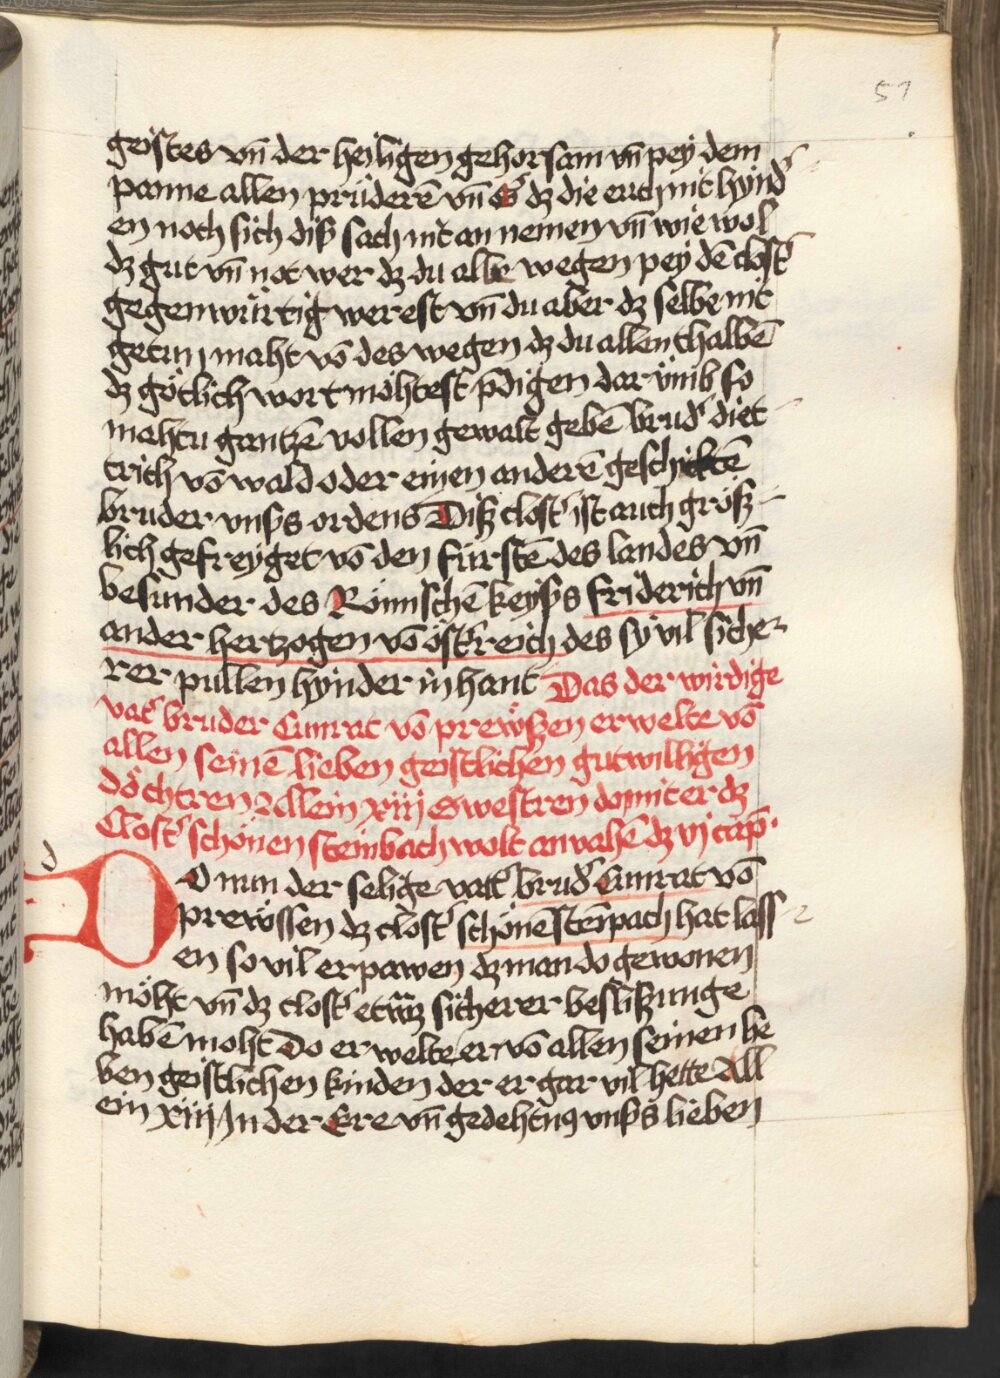 57
geistes vn̄ der heiligen gehorsam vn̄ pey dem
panne allen prüderē vn̄ dz die euch nit hynd͛
en noch sich diß sach nit an nemen vn̄ wie wol
dz gut vn̄ not wer dz du albe wegen pey dē clost͛
gegenwürtig werest vn̄ du aber dz selbe nit
getun maht vō des wegen dz du allenthalbē
dz götlich wort möhtest p̄digen dar vmb so
mahtu gantzē vollen gewalt gebē brud͛ diet
trich vō wald oder einen anderē geschiktē
bruder vnſs ordens Diß clost͛ ist auch größ
lich gefreyget vō den fürstē des landes vn̄
besunder des Römischē keyſs friderich vn̄
ander hertzogen vō öst͛reich des sy vil siche
rer pullen hynder in hant Das der wirdige
vat͛ bruder Cunrat vō prewßen erwelte vō
allen seinē lieben geistlichen gutwilligen
döchtren allein xiij swestren do mit er dz
Clost͛ schönen steinbach wolt anvahē dz vj cap̄
d
DO nun der selige vat͛ brud͛ Cunrat vō
prewssen dz clost͛ schönē stēpach hat lass
en so vil erpawen dz man do gewonen
möht vn̄ dz clost͛ etwz sicherer beslißunge
habē moht Do er welte er vō allen seinen lie
ben geistlichen kinden der er gar vil hette All
ein xiij In der Ere vn̄ gedehtnꝰ vnſs lieben